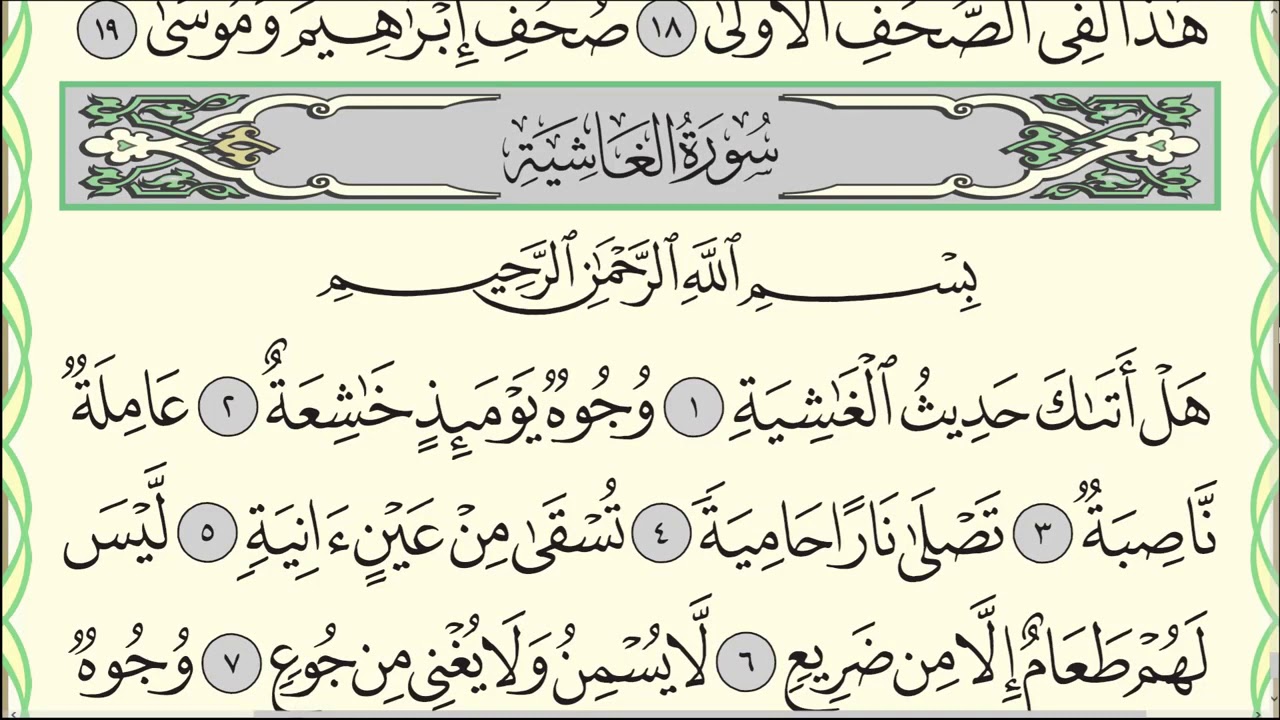 هَٰذَا لَفِى ٱلصُّحُفِ ٱلْأُولَىٰ ١٨ صُحُفِ إِبْرَٰهِيمَ وَمُوسَىٰ ١٩
سُورَةُ الغَاشِيَةِ
بِسْمِ ٱللَّهِ ٱلرَّحْمَٰنِ ٱلرَّحِيمِ
هَلْ أَتَىٰكَ حَدِيثُ ٱلْغَٰشِيَةِ ١ وُجُوهٌ يَوْمَئِذٍ خَٰشِعَةٌ ٢ عَامِلَةٌ
نَّاصِبَةٌ ٣ تَصْلَىٰ نَارًا حَامِيَةً ٤ تُسْقَىٰ مِنْ عَيْنٍ ءَانِيَةٍ ٥ لَّيْسَ
لَهُمْ طَعَامٌ إِلَّا مِن ضَرِيعٍ ٦ لَّا يُسْمِنُ وَلَا يُغْنِى مِن جُوعٍ ٧ وُجُوهٌ